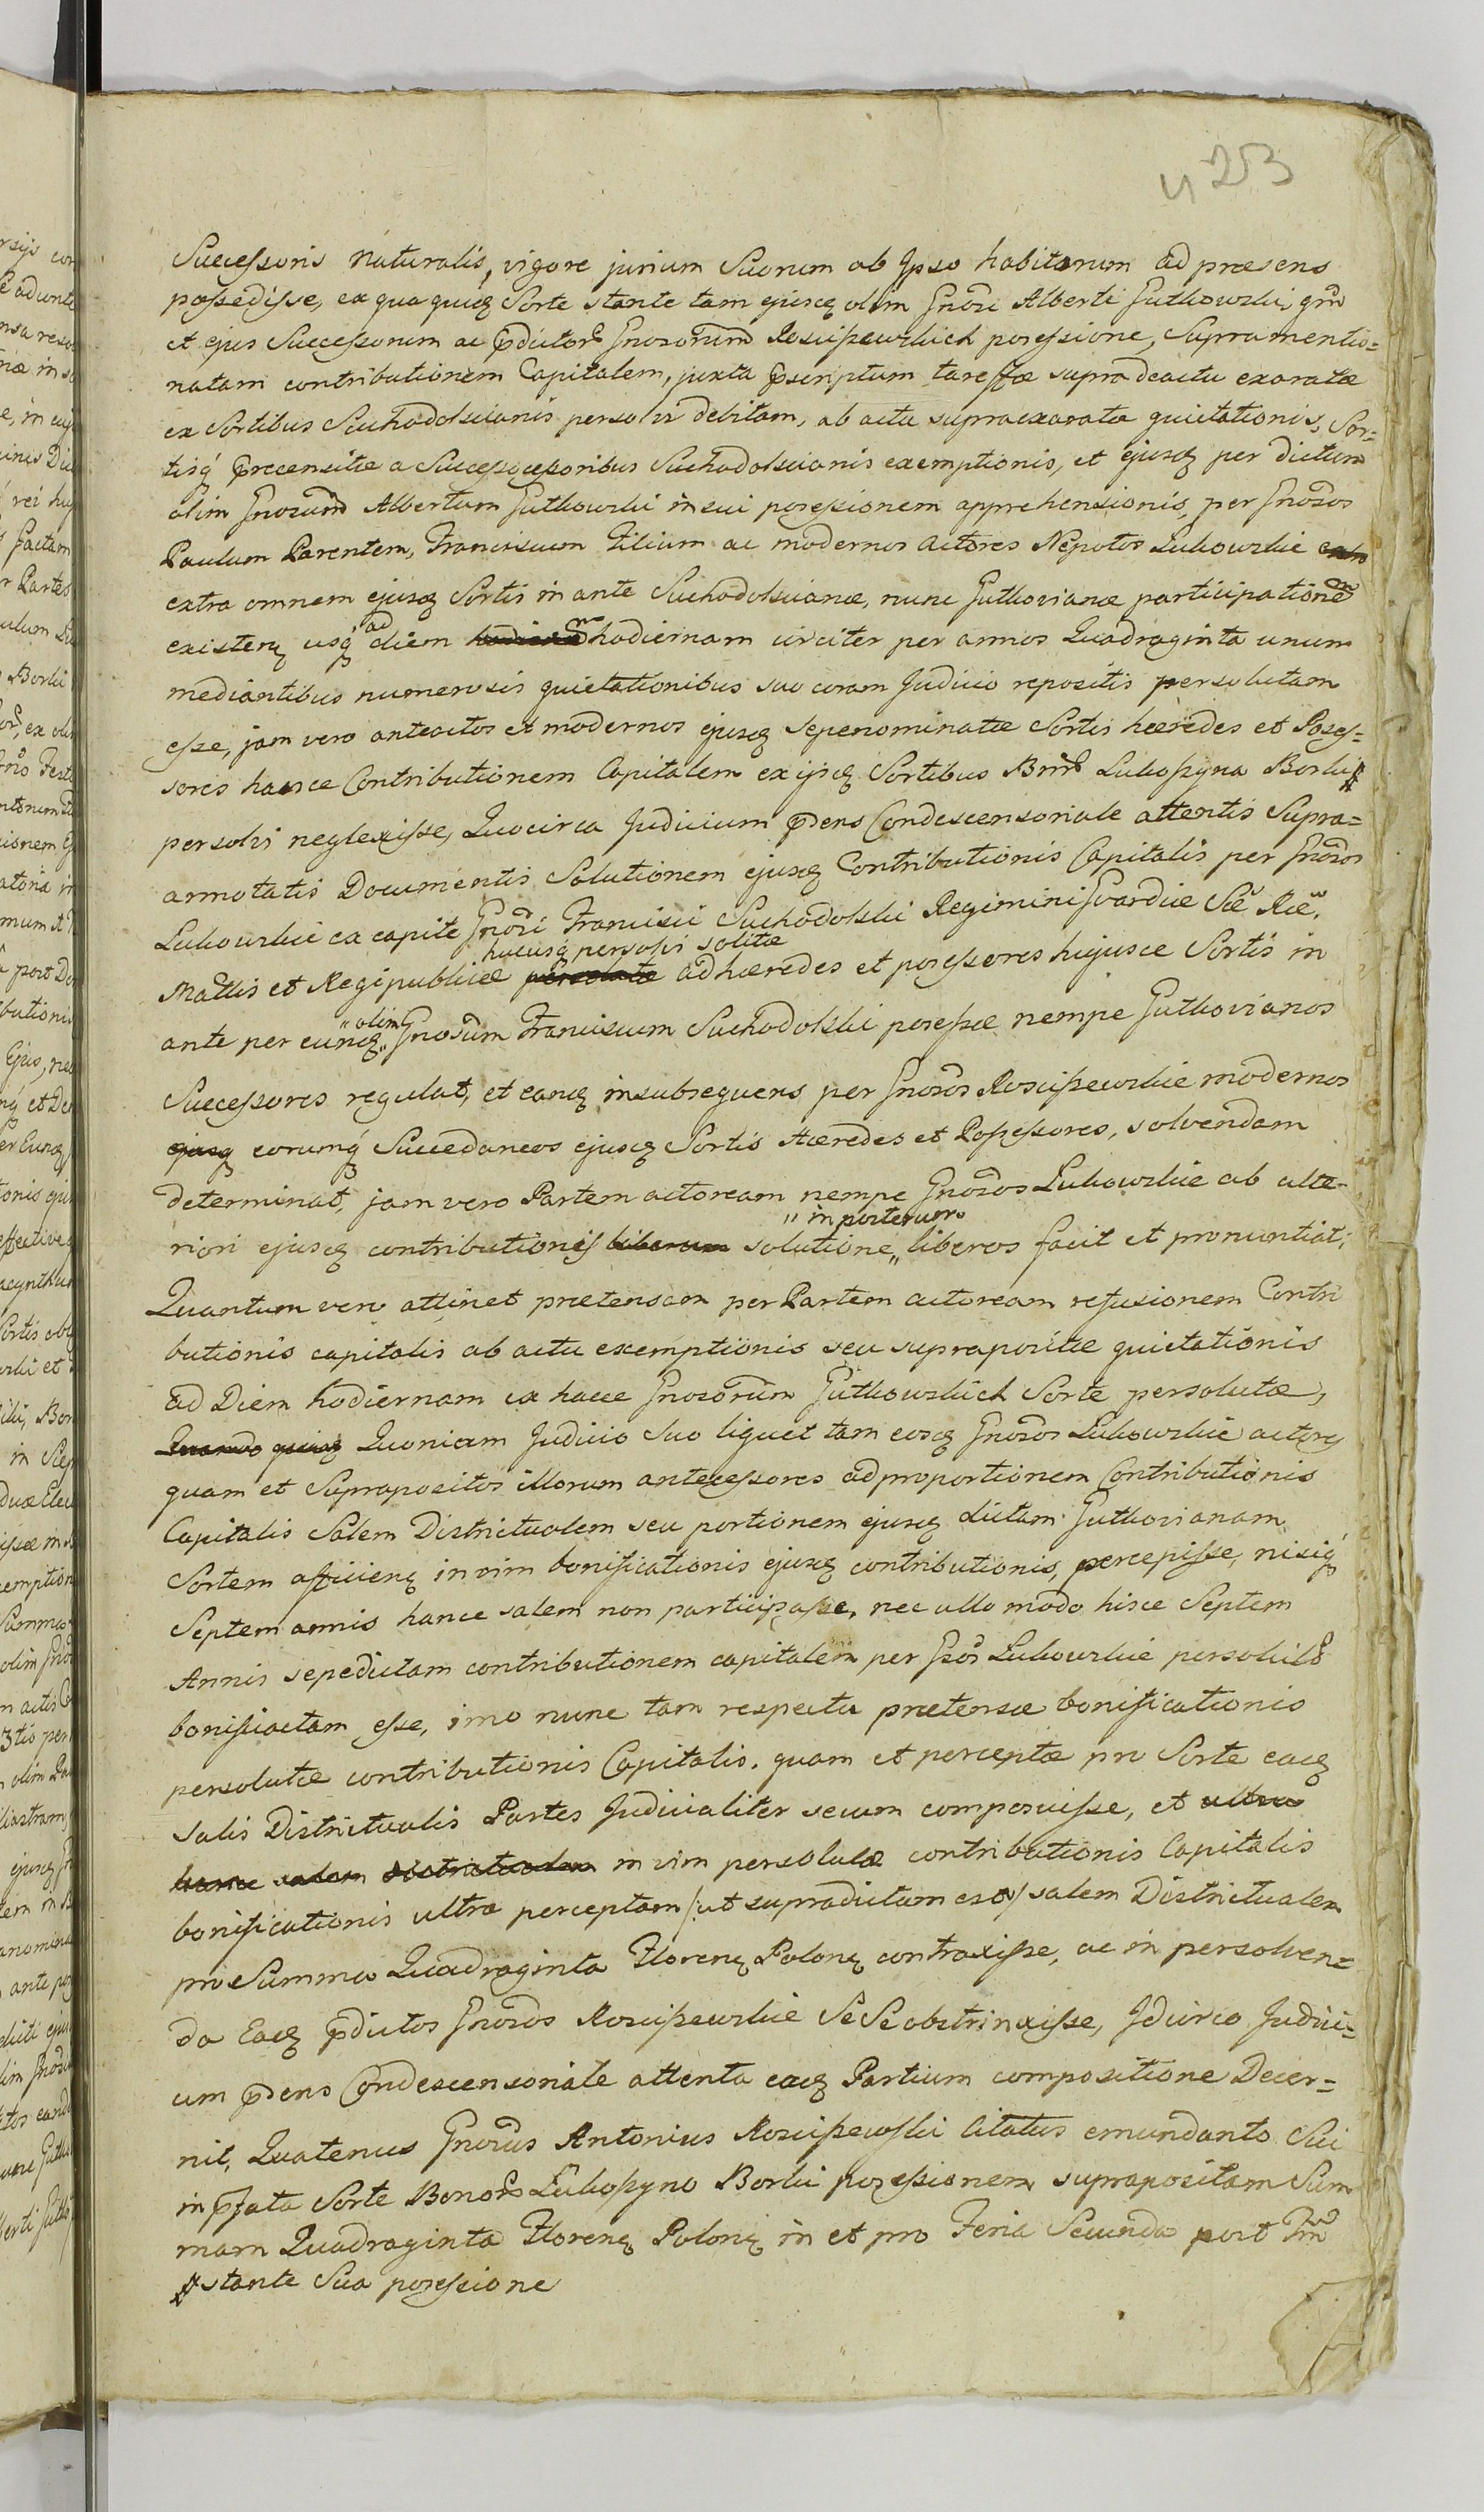 4253
Successoris naturalis, vigore jurium Suorum ab Ipso habitorum ad præsens
possedisse, ex qua quidq Sorte stante tam ejusq olim Gnosi Alberti Gutkowski, qm
et ejus Successorum ac pdictor Gnosorum Rosciszewskich possessione, Supramentio=
natam contributionem Capitalem, juxta pscriptum tareffæ supra de actu exaratæ
ex Sortibus Suchodolscianis persolvi debitam, ab actu supraexaratæ quietationis, Sor=
tisq precensitæ a Succesocessoribus Suchodolscianis exemptionis, et ejusq per dictum
olim Gnosum Albertum Gutkowski in sui possessionem apprehensionis, per Gnosos
Paulum Parentem, Franciscum Filium ac modernos Actores Nepotes Lukowskie
extra omnem ejusq Sortis in ante Suchodolscianæ, nunc Gutkovianæ participatione
existenq usq ad diem hodiernam circiter per annos Quadraginta unum
mediantibus numerosis quietationibus suo coram Judicio repositis persolutam
esse, jam vero anteactos et modernos ejusq sepenominatæ Sortis hæredes et Posses=
sores hance Contributionem Capitalem ex ijsq Sortibus Bnor Lukoszyna Borki
persolvi neglexisse, Quocirca Judicium pdens Condescensoriale attentis Supra=
annotatis Documentis Solutionem ejusq Contributionis Capitalis per Gnosos
Lukowskie ex capite Gnosi Francisci Suchodolski Regimini Gvardiæ Sæ Ræ
hucusq persolvi solitæ
Mattis et Regipublicæ persolutæ ad hæredes et possessores hujusce Sortis in
ante per eunq "olim" Gnosum Franciscum Suchodolski possessæ nempe Gutkovianos
Successores regulat, et eanq insubsequens per Gnosos Rosciszewskie modernos
ejusq eorumq Succedaneos ejusq Sortis Hæredes et Possessores, solvendam
determinat, jam vero Partem actoream nempe Gnosos Lukowskie ab ulte=
"in posterum
riori ejusq contributionis liberam solutione" liberos facit et pronuntiat;
Quantum vero attinet prætensam per Partem actoream refusionem Contri
butionis capitalis ab actu exemptionis seu supraposítæ quietationis
ad Diem hodiernam ex hacce Gnosorum Gutkowskich Sorte persolutæ,
Quoniam Judicio Suo liquet tam eosq Gnosos Lukowskie actores
quam et Suprapositos illorum antecessores ad proportionem Contributionis
Capitalis Salem Districtualem seu portionem ejusq dictam Gutkovianam
Sortem afficienq in vim bonificationis ejusq contributionis, percepisse, nisiq
Septem annis hance salem non participasse, nec ullo modo hisce Septem
Annis sepedictam contributionem capitalem per Gsos Lukowskie persolutã
bonifiactam esse, imo nunc tam respectu prætensæ bonificationis
persolutæ contributionis Capitalis, quam et perceptæ pro Sorte eaq
salis Districtualis Partes Judicialiter secum composuisse, et ultra
hance salem districtualem in vim persolutæ contributionis Capitalis
bonificationis ultra perceptam /:ut supradictum est:/ salem Districtualem
pro Summa Quadraginta Florenq Polonq contraxisse, ac in persolven=
da Eaq pdictos Gnosos Rosciszewskie Se Se obstrinxisse, Idcirco Judici=
um pdens Condescensoriale attenta eaq Partium compositione Decer=
nit, Quatenus Gnosus Antonius Rosciszewski Citatus emundanto Sui
in pfata Sorte Bonor Lukoszyno Borki possessionem suprapositam Sum
mam Quadraginta Florenq Polonq in et pro Feria Secunda post Fm
stante Sua possessione